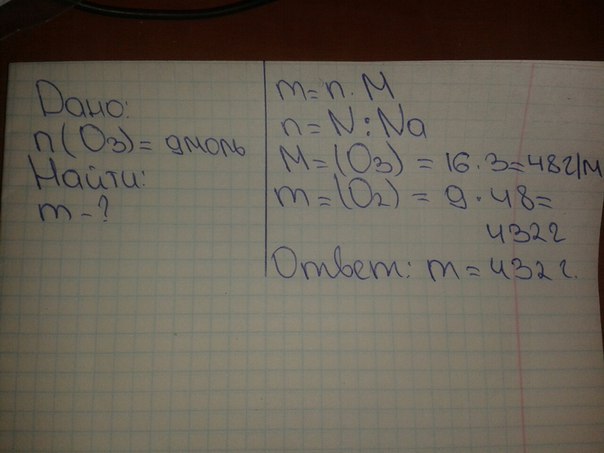 Дано:
n(O3)= 9моль
Найти:
m-?
m=n·M
n=N:Na
M=(O3) = 16·3=48г/м
m=(O2) = 9·48=
432г
Ответ: m=432г.